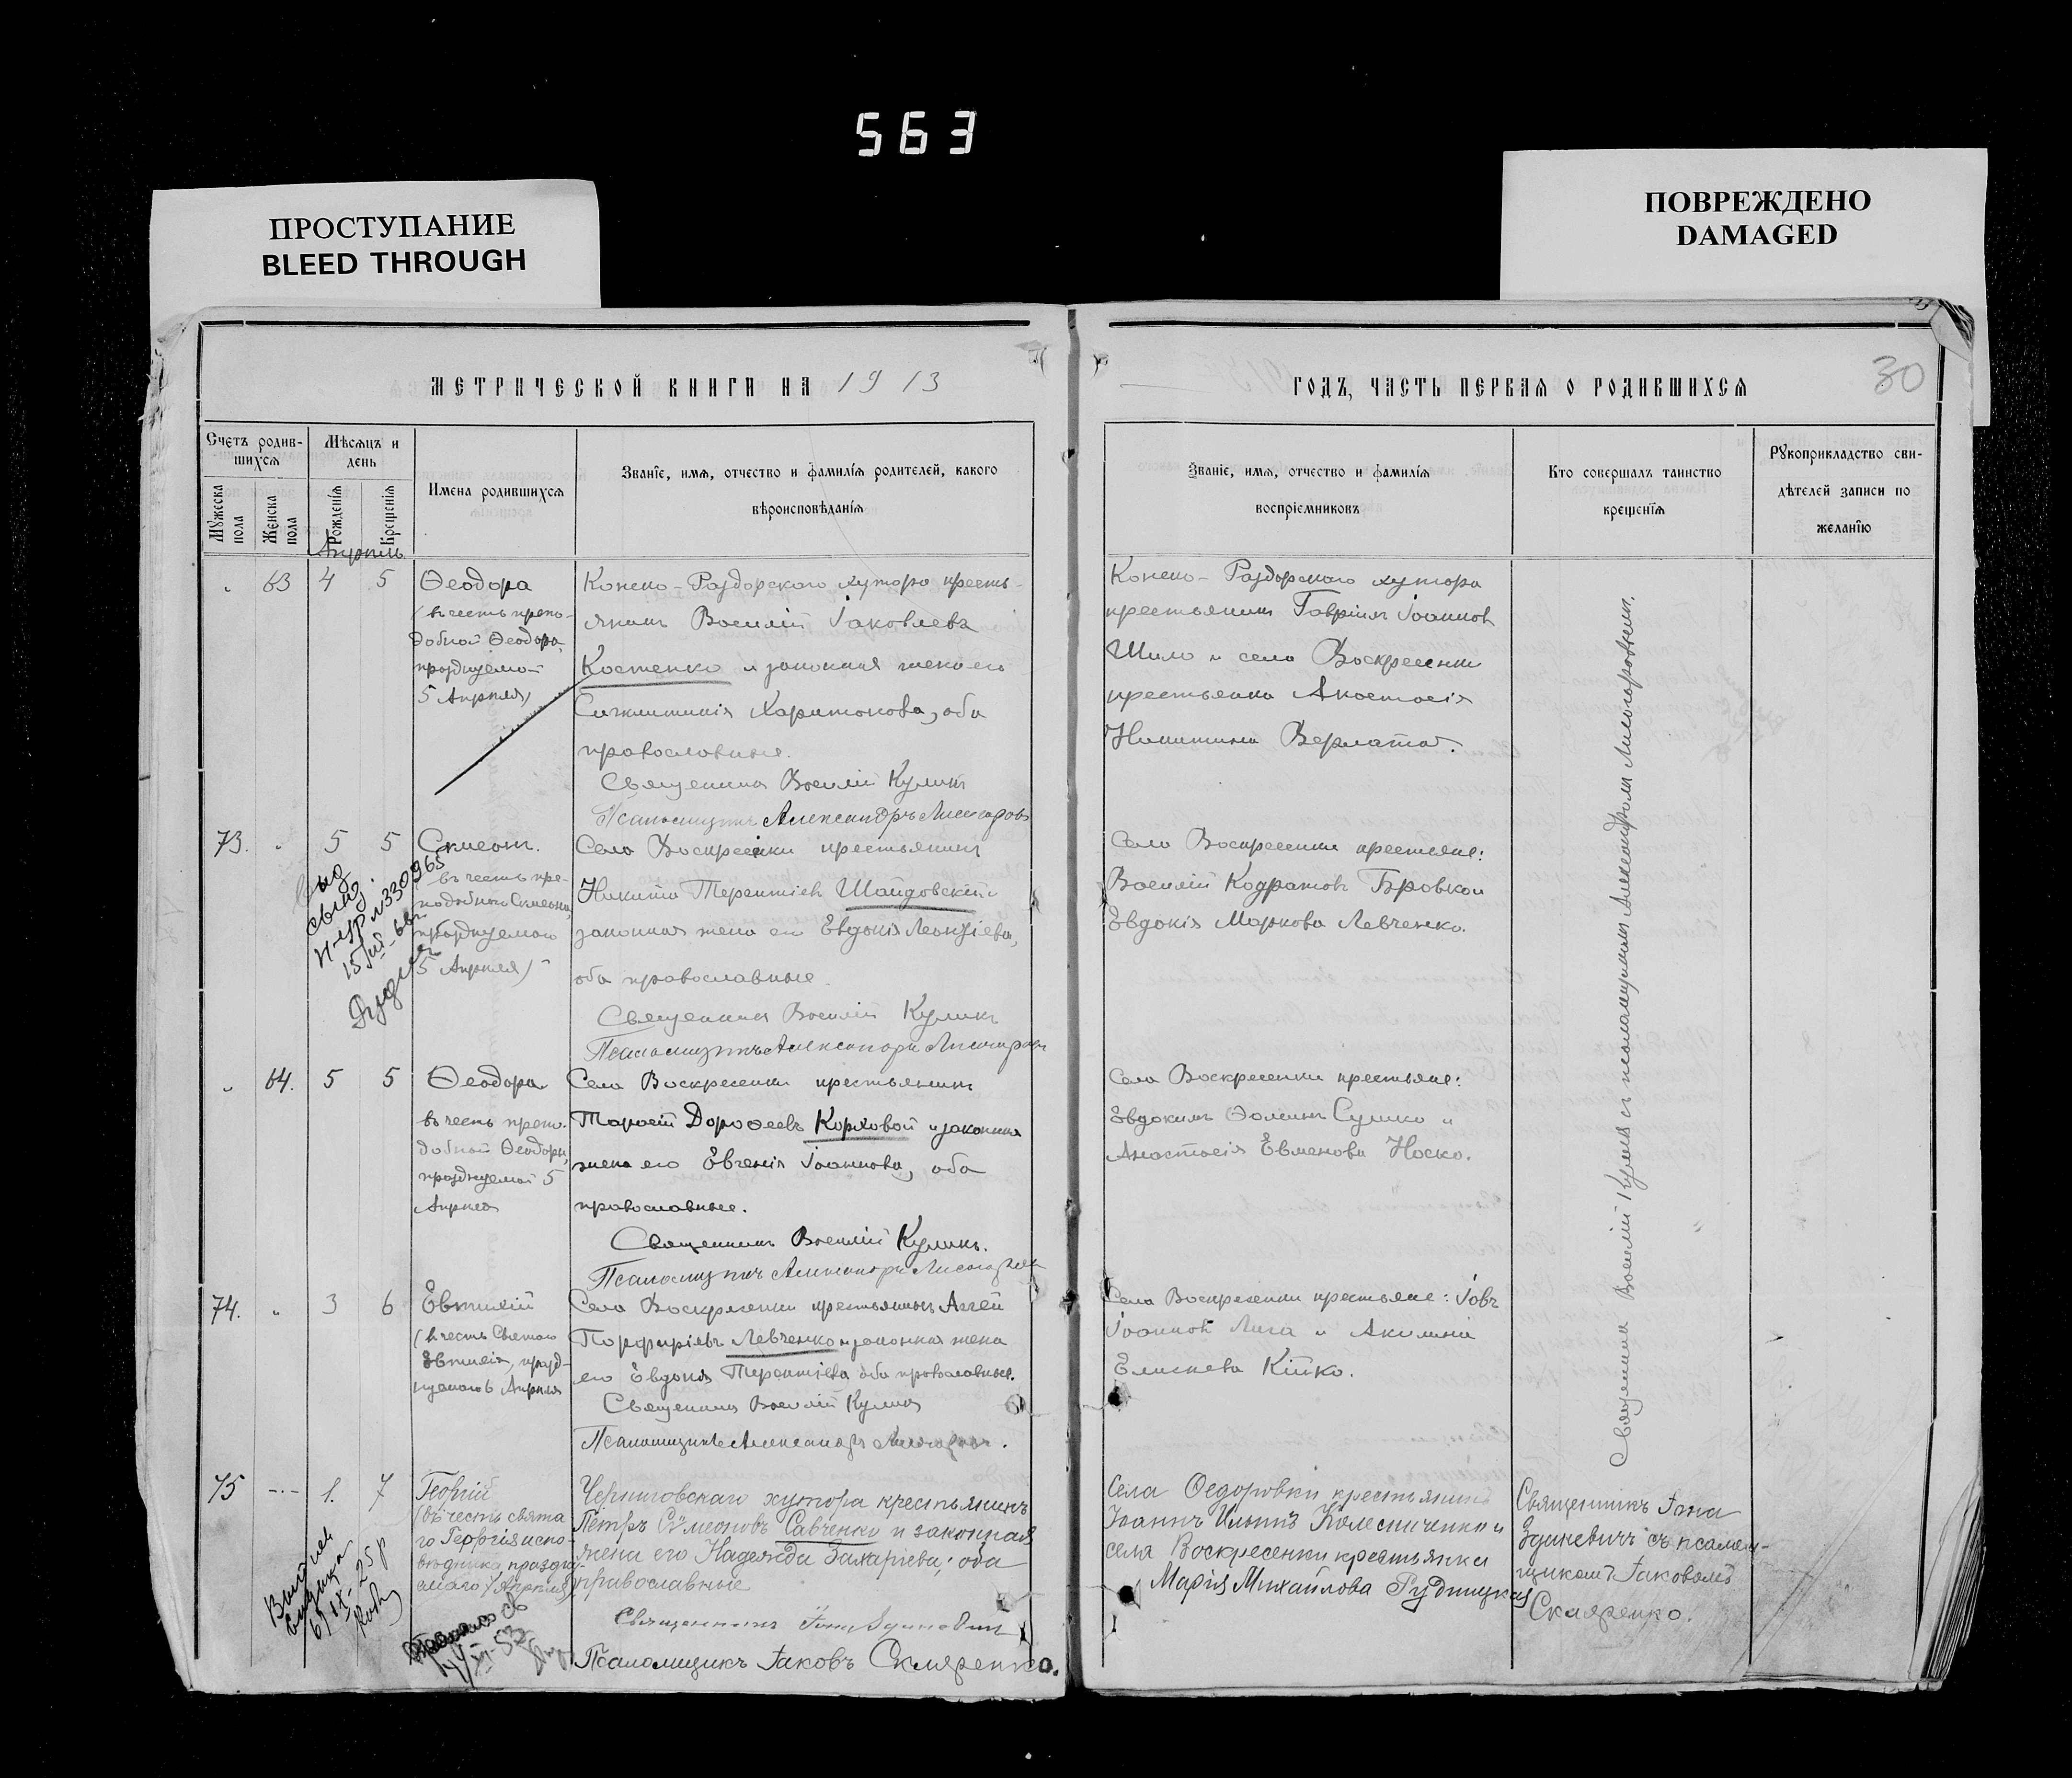 563
ПРОСТУПАНИЕ
BLEED THROUGH
ПОВРЕЖДЕНО
DAMAGED
МЕТРИЧЕСКОЙ КНИГИ НА 1913
Счетъ родив-
шихся
Мѣсяцъ и
день
Мужеска
пола
Женска
пола
Рожденія
Крещенія
Имена родившихся
Званіе, имя, отчество и фамилія родителей, какого
вѣроисповѣданія
Апрѣль
„ 63 4 5
Ѳеодора
(въ честь препо-
добной Ѳеодоры,
празднуемой
5 Апрѣля)
Конско-Раздорскаго хутора кресть-
янинъ Василій Іаковлевъ
Костенко и законная жена его
Синклитикія Харитонова, оба
православные.
Священникъ Василій Куликъ
Псаломщикъ Александръ
73. „ 5 5
Симеонъ.
въ честь пре-
подобнаго Симеона,
празднуемаго
5 Апрѣля)
Села Воскресенки крестьянинъ
Никита Терентіевъ Шайдовскій и
законная жена его Евдокія Леонтіева,
оба православные.
Священникъ Василій Куликъ
Псаломщикъ Александръ
№ 330965
„ 64. 5 5
Ѳеодора
въ честь препо-
добной Ѳеодоры,
празднуемой 5
Апрѣля
Села Воскресенки крестьянинъ
Тарасій Дороѳеевъ Корховой и законная
жена его Евгенія Іоаннова, оба
православные.
Священникъ Василій Куликъ.
Псаломщикъ Александръ
74. „ 3 6
Евтихій
(въ честь Святаго
Евтихія, празд-
нуемаго 6 Апрѣля
Села Воскресенки крестьянинъ Аггей
Порфиріевъ Левченко и законная жена
его Евдокія Терентіева оба православные.
Священникъ Василій Куликъ
Псаломщикъ Александръ
75 -·- 1. 7
Георгій
(въ честь свята
го Георгія испо-
вѣдника праздну-
емаго 7 Апрѣля)
Черниговскаго хутора крестьянинъ
Петръ Сѵмеоновъ Савченко и законная
жена его Надежда Захаріева; оба
православные
Священникъ Іона
Псаломщикъ Іаковъ Скляренко.
ГОДЪ, ЧАСТЬ ПЕРВАЯ О РОДИВШИХСЯ
30
Званіе, имя, отчество и фамилія
воспріемниковъ
Кто совершалъ таинство
крещенія
Рукоприкладство сви-
дѣтелей записи по
желанію
Конско-Раздорскаго хутора
крестьянинъ Гавріилъ Іоанновъ
Шило и села Воскресенки
крестьянка Анастасія
Никитина Верлата.
Села Воскресенки крестьяне:
Василій Кодратовъ Бровко и
Евдокія Маркова Левченко.
Села Воскресенки крестьяне:
Евдокимъ Ѳоминъ Сушко и
Анастасія Евменова Носко.
Села Воскресенки крестьяне: Іовъ
Іоанновъ Лига и Акилина
Елисеева Кійко.
Села Ѳедоровки крестьянинъ
Іоаннъ Ильинъ Колесниченко и
села Воскресенки крестьянка
Марія Михайлова Рудницкая
Священникъ Василій Куликъ съ псаломщикомъ Александромъ
Священникъ Іона
Здикевичъ съ псалом-
щикомъ Іаковомъ
Скляренко.